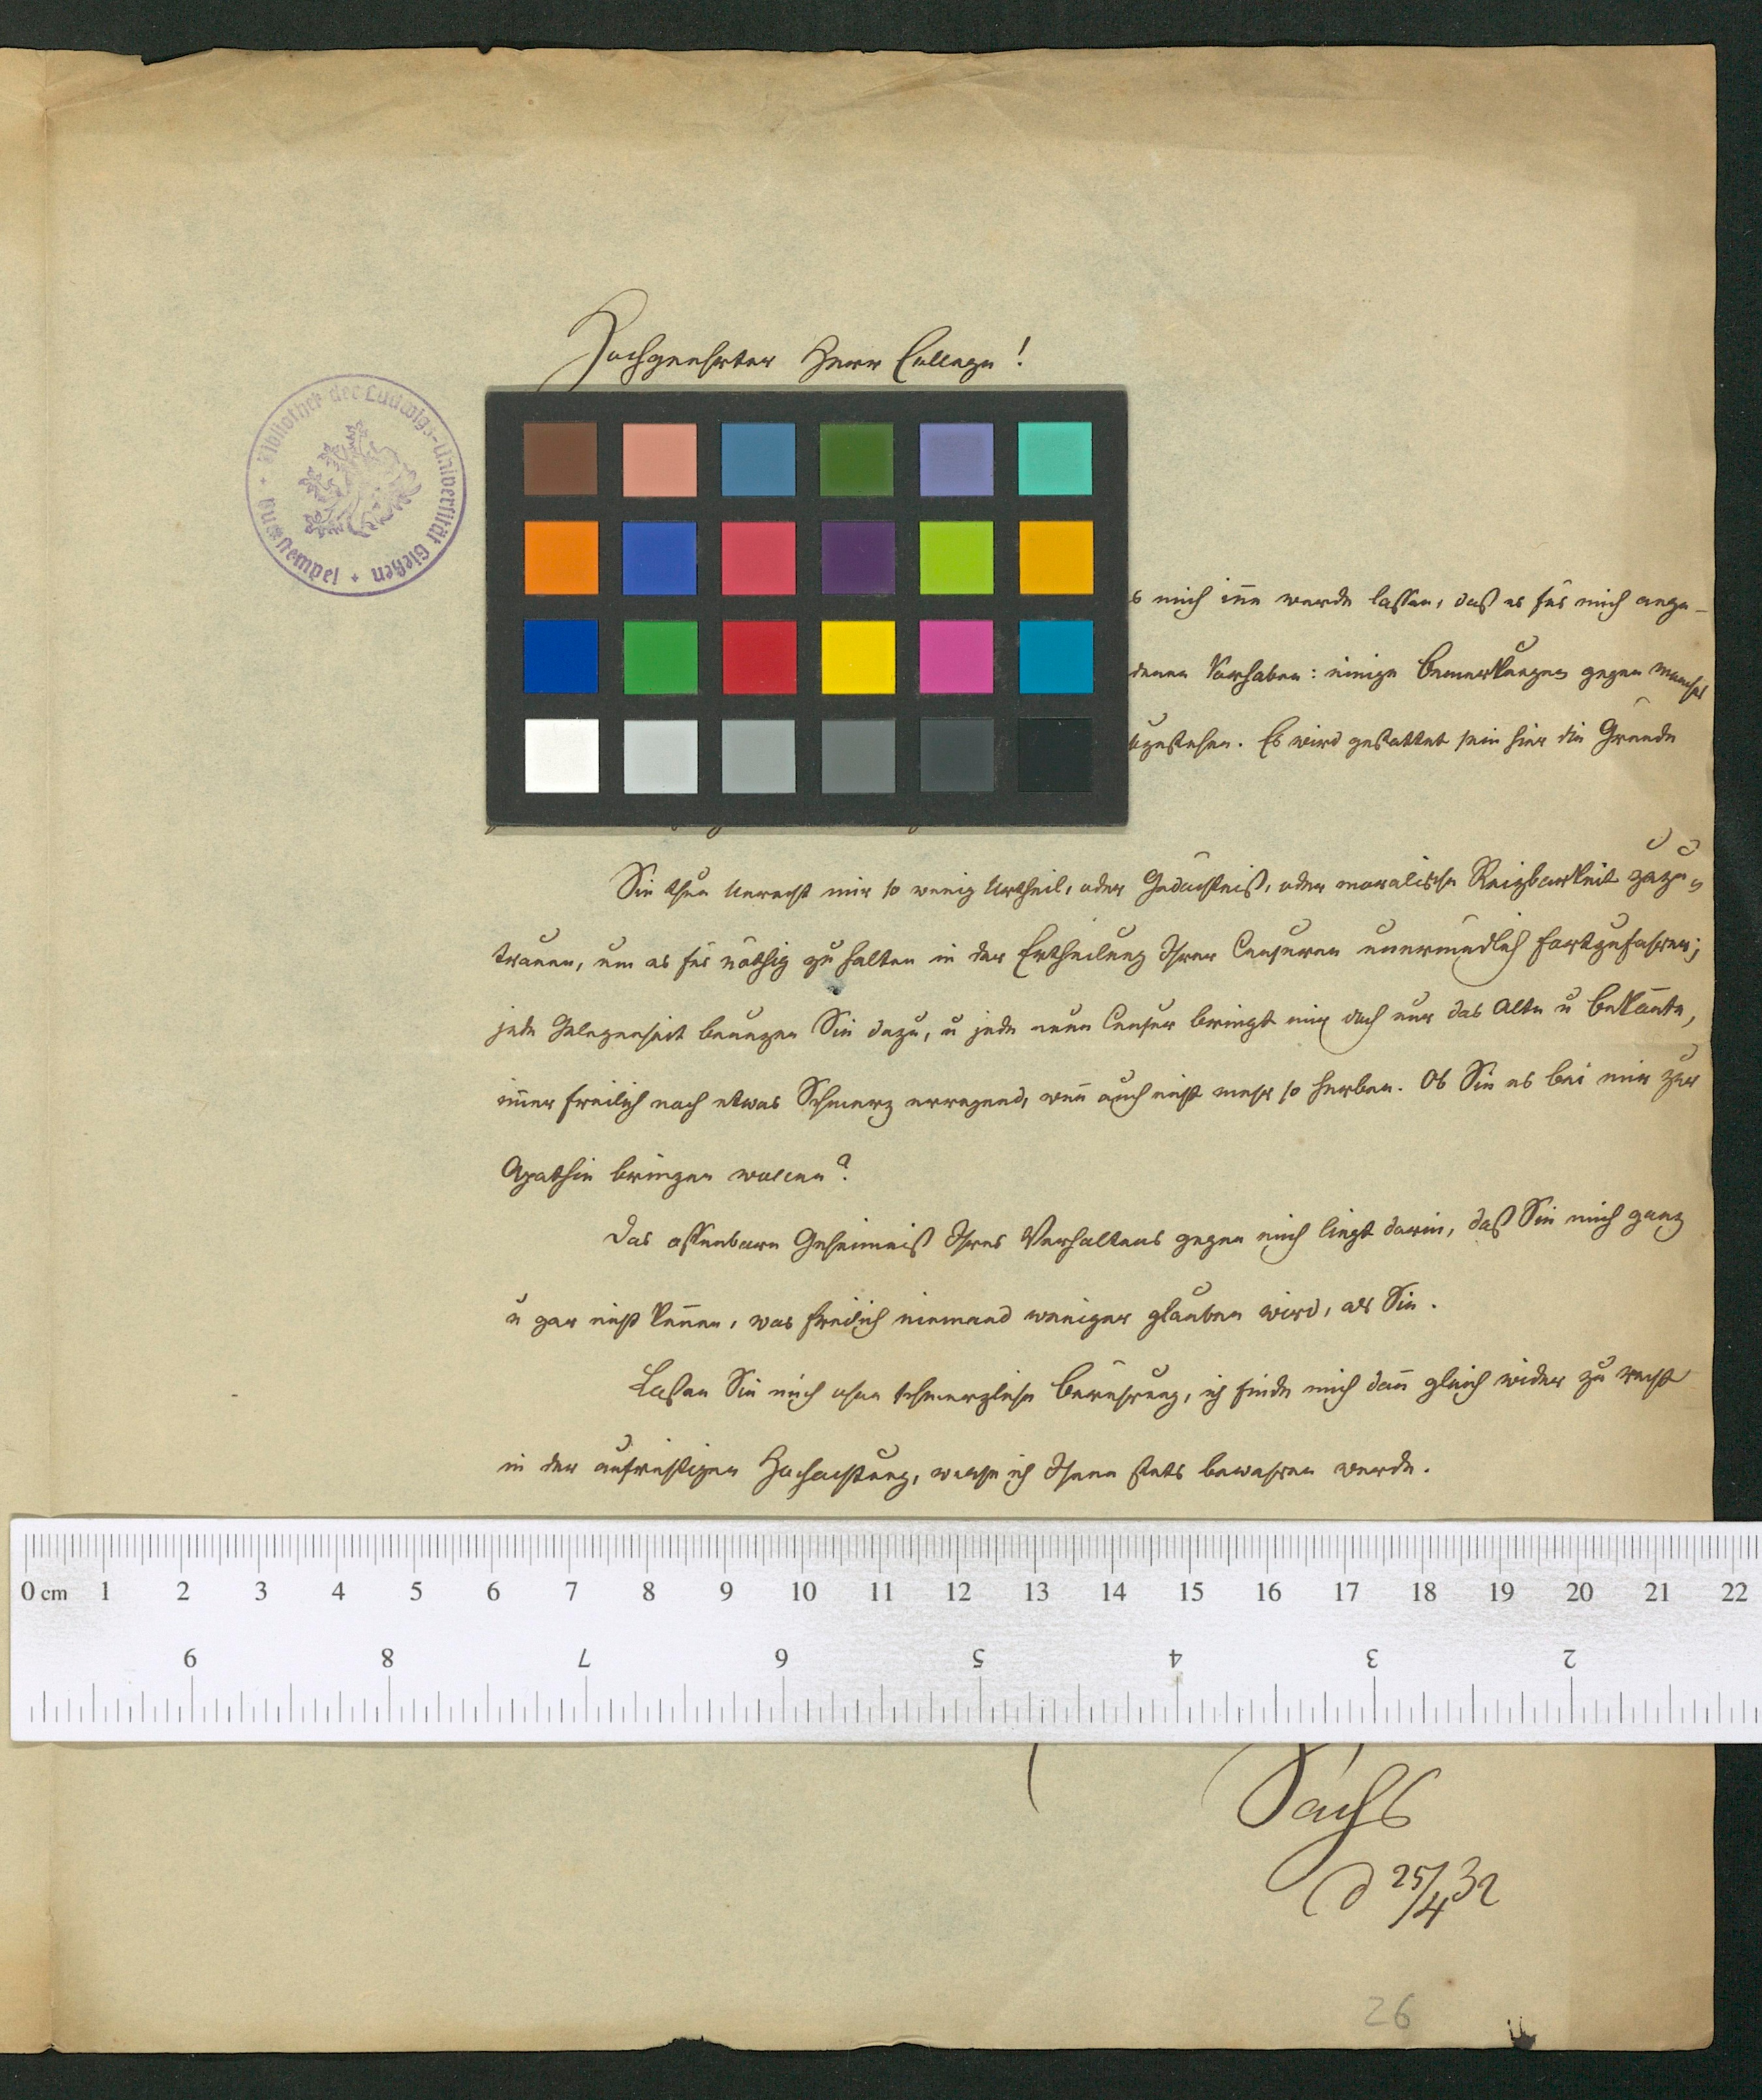 Hochgeehrter Herr College!
Bibliothek der Ludwigs-Universität Gießen
mich iñe werde lassen, daß es für mich ange-
denen Vorhaben: einige Bemerkungen gegen manches
bzustehen. Es wird gestattet sein hier die Gründe
Sie thun Unrecht mir so wenig Urtheil, oder Gedächtniß, oder moralische Reizbarkeit zuzu-
trauen, um es für nöthig zu halten in der Ertheilung Ihrer Censuren unermüdlich fortzufahren;
jede Gelegenheit benuzen Sie dazu, u jede neue Censur bringt mir doch nur das Alte u bekañte,
im̄er freilich noch etwas Schmerz erregend, weñ auch nicht mehr so herben. Ob Sie es bei mir zur
Apathie bringen wollen?
Das offenbare Geheimniß Ihres Verhaltens gegen mich liegt darin, daß Sie mich ganz
u gar nicht keñen, was freilich niemand weniger glauben wird, als Sie.
Laßen Sie mich ohne schmerzliche Berührung, ich finde mich dañ gleich wider zu recht
in der aufrichtigen Hochachtung, welche ich Ihnen stets bewahren werde.
0 cm 1 2 3 4 5 6 7 8 9 10 11 12 13 14 15 16 17 18 19 20 21 22
9 8 7 6 5 4 3 2
Sachs
d 25/4 32
26